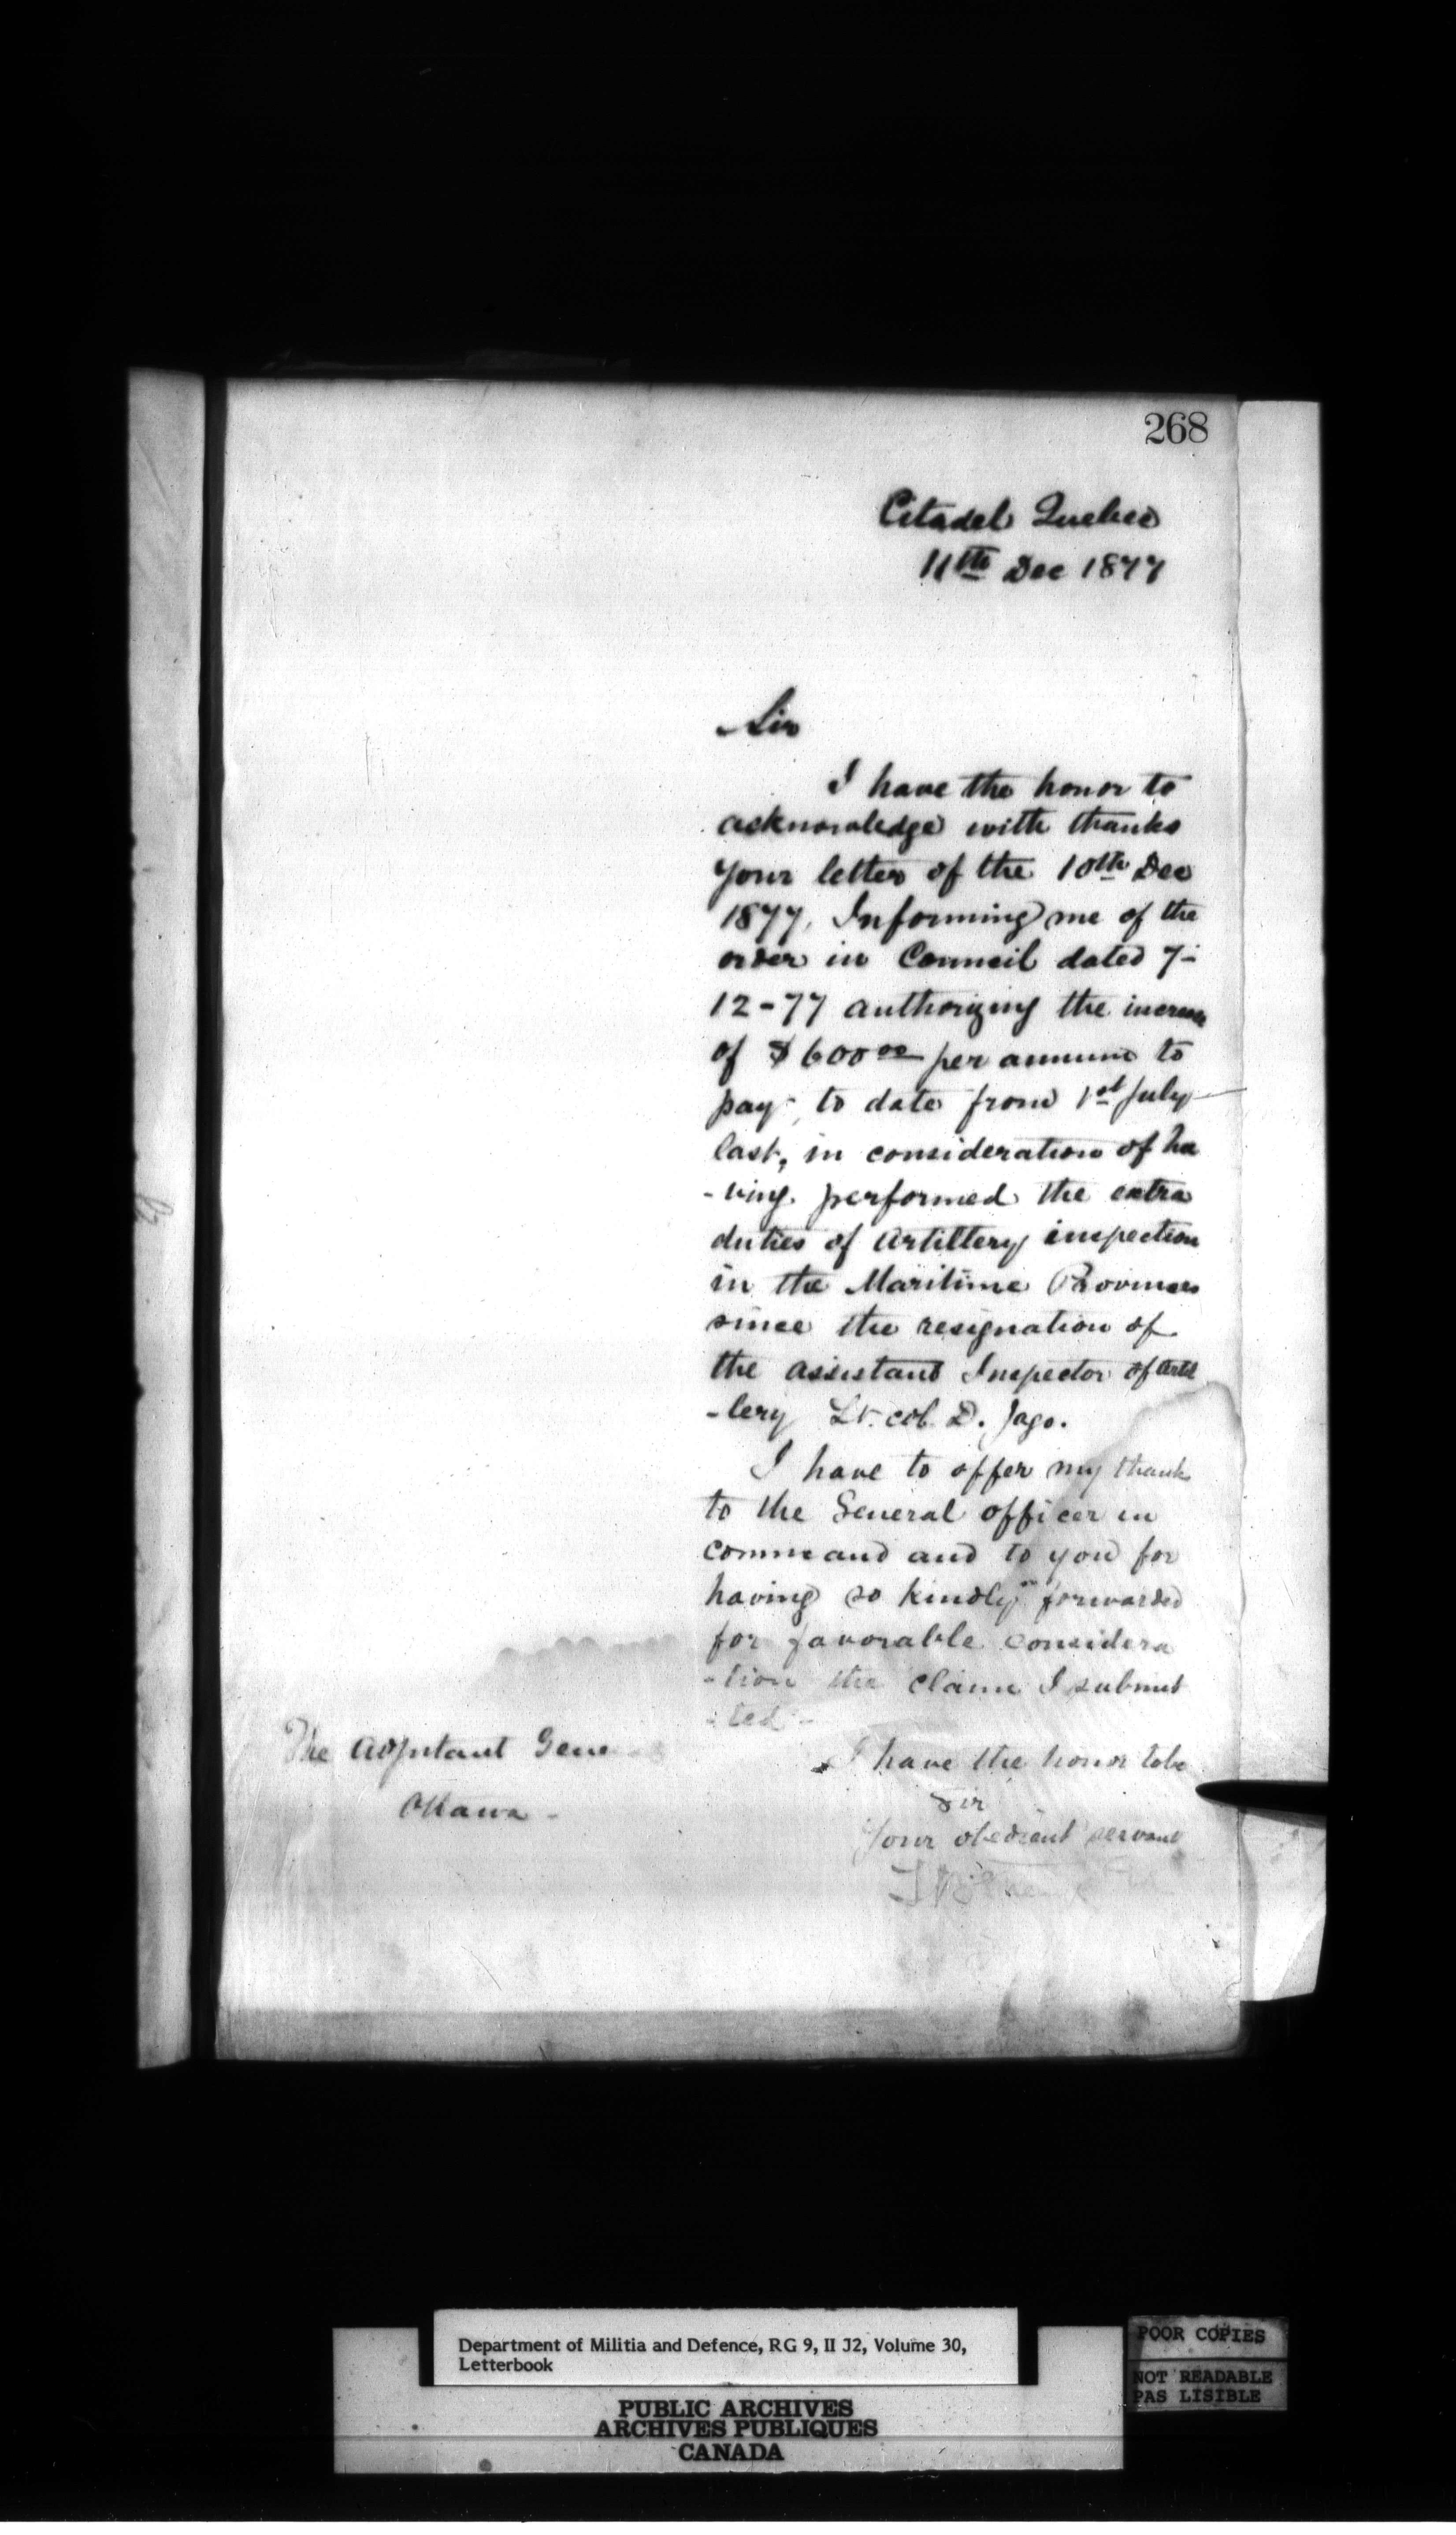 268
Citadel Quebec
11th Dec 1877
Sir
I have the honor to
acknowledge with thanks
your letter of the 10th Dec
1877, Informing me of the
order in Council dated 7-
12-77 authorizing the increase
of $600.00 per annum to
pay, to date from 1st July
last, in consideration of ha
-ving performed the extra
duties of Artillery inspection
in the Maritime Provinces
since the resignation of
the assistant Inspector of Artil
-lery Lt. col. D. Jago.
I have to offer my thanks
to the General officer in
command and to you for
having so kindly forwarded
for favorable considera
-tion the claim I submit
-ted -
The Adjutant Gene
Ottawa -
I have the honor to be
Sir
Your obedient servant
Department of Militia and Defence, RG 9, II J2, Volume 30,
Letterbook
PUBLIC ARCHIVES
ARCHIVES PUBLIQUES
CANADA
POOR COPIES
NOT READABLE
PAS LISIBLE